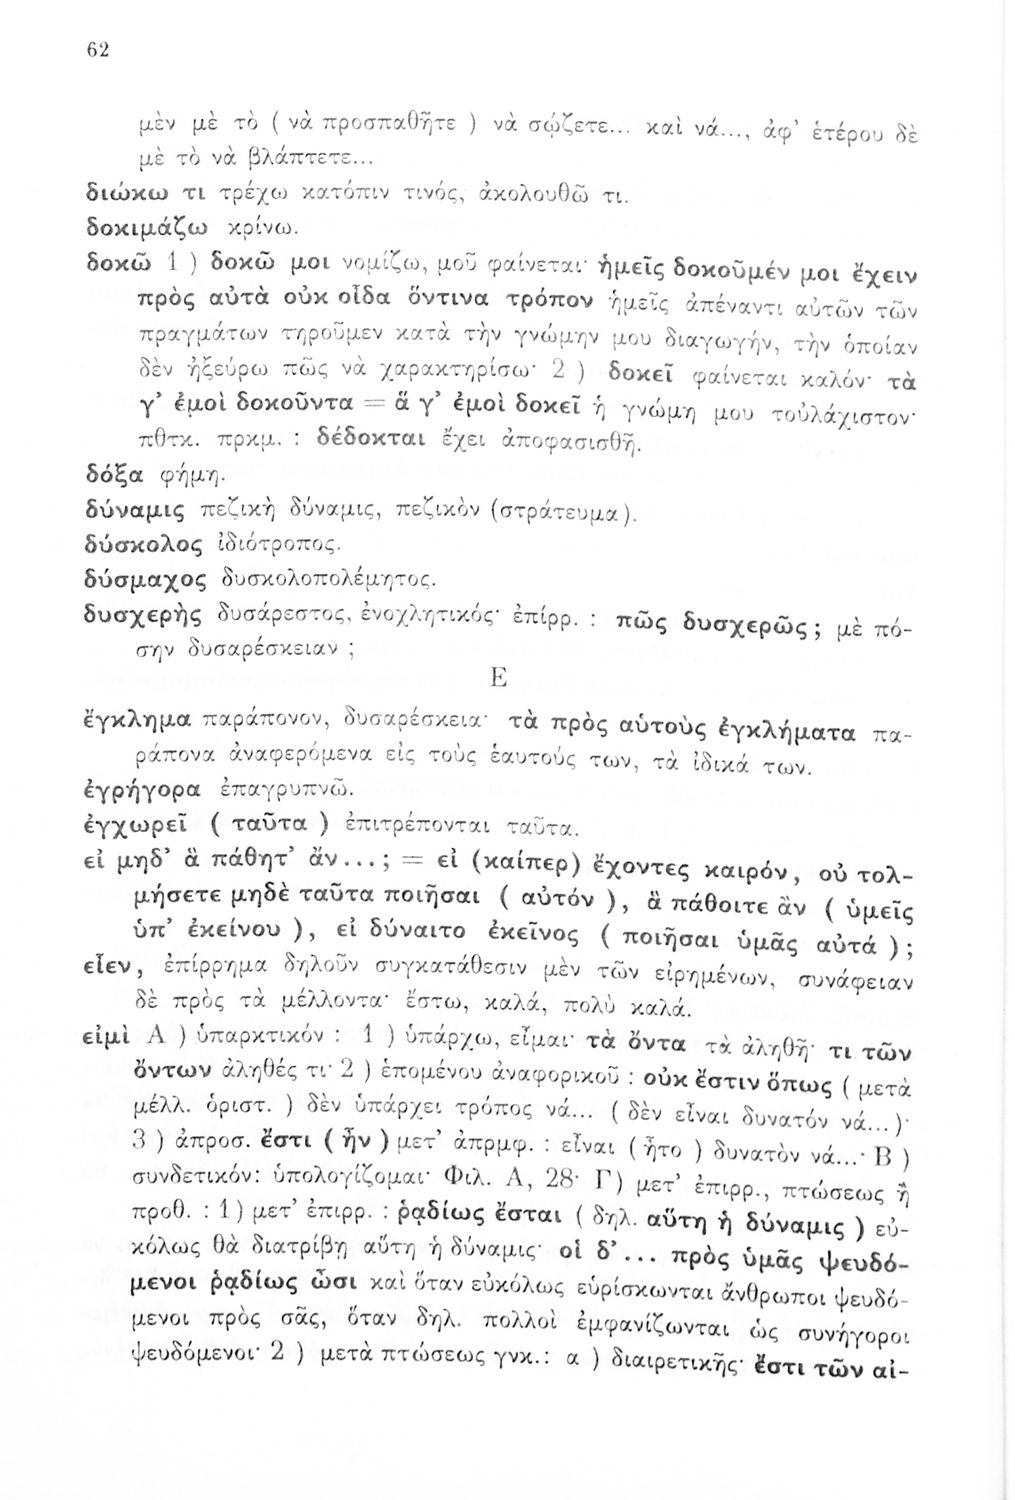 62
μὲν μὲ τὸ ( νὰ προσπαθῆτε ) νὰ σῴζετε... καὶ νά..., ἀφ’ ἑτέρου δὲ
μὲ τὸ νὰ βλάπτετε...
διώκω τι τρέχω κατόπιν τινός, ἀκολουθῶ τι.
δοκιμάζω κρίνω.
δοκῶ 1 ) δοκῶ μοι νομίζω, μοῦ φαίνεται· ἡμεῖς δοκοῦμέν μοι ἔχειν
πρὸς αὐτὰ οὐκ οἶδα ὅντινα τρόπον ἡμεῖς ἀπέναντι αὐτῶν τῶν
πραγμάτων τηροῦμεν κατὰ τὴν γνώμην μου διαγωγήν, τὴν ὁποίαν
δὲν ἠξεύρω πῶς νὰ χαρακτηρίσω· 2 ) δοκεῖ φαίνεται καλόν· τὰ
γ’ ἐμοὶ δοκοῦντα = ἅ γ’ ἐμοὶ δοκεῖ ἡ γνώμη μου τοὐλάχιστον·
πθτκ. πρκμ. : δέδοκται ἔχει ἀποφασισθῆ.
δόξα φήμη.
δύναμις πεζικὴ δύναμις, πεζικὸν (στράτευμα).
δύσκολος ἰδιότροπος.
δύσμαχος δυσκολοπολέμητος.
δυσχερὴς δυσάρεστος, ἐνοχλητικός· ἐπίρρ. : πῶς δυσχερῶς; μὲ πό-
σην δυσαρέσκειαν ;
Ε
ἔγκλημα παράπονον, δυσαρέσκεια· τὰ πρὸς αὑτοὺς ἐγκλήματα πα-
ράπονα ἀναφερόμενα εἰς τοὺς ἑαυτούς των, τὰ ἰδικά των.
ἐγρήγορα ἐπαγρυπνῶ.
ἐγχωρεῖ ( ταῦτα ) ἐπιτρέπονται ταῦτα.
εἰ μηδ’ ἃ πάθητ’ ἄν...; = εἰ (καίπερ) ἔχοντες καιρόν, οὐ τολ-
μήσετε μηδὲ ταῦτα ποιῆσαι ( αὐτόν ), ἃ πάθοιτε ἂν ( ὑμεῖς
ὑπ’ ἐκείνου ), εἰ δύναιτο ἐκεῖνος ( ποιῆσαι ὑμᾶς αὐτά ) ;
εἶεν, ἐπίρρημα δηλοῦν συγκατάθεσιν μὲν τῶν εἰρημένων, συνάφειαν
δὲ πρὸς τὰ μέλλοντα· ἔστω, καλά, πολὺ καλά.
εἰμὶ Α ) ὑπαρκτικόν : 1 ) ὑπάρχω, εἶμαι· τὰ ὄντα τὰ ἀληθῆ· τι τῶν
ὄντων ἀληθές τι· 2 ) ἑπομένου ἀναφορικοῦ : οὐκ ἔστιν ὅπως ( μετὰ
μέλλ. ὁριστ. ) δὲν ὑπάρχει τρόπος νά... ( δὲν εἶναι δυνατόν νά...)·
3 ) ἀπροσ. ἔστι ( ἦν ) μετ’ ἀπρμφ. : εἶναι ( ἦτο ) δυνατὸν νά...· Β )
συνδετικόν: ὑπολογίζομαι· Φιλ. Α, 28· Γ) μετ’ ἐπιρρ., πτώσεως ἢ
προθ. : 1) μετ’ ἐπιρρ. : ῥᾳδίως ἔσται ( δηλ. αὕτη ἡ δύναμις ) εὐ-
κόλως θὰ διατρίβῃ αὕτη ἡ δύναμις· οἱ δ’... πρὸς ὑμᾶς ψευδό-
μενοι ῥᾳδίως ὦσι καὶ ὅταν εὐκόλως εὑρίσκωνται ἄνθρωποι ψευδό-
μενοι πρὸς σᾶς, ὅταν δηλ. πολλοὶ ἐμφανίζωνται ὡς συνήγοροι
ψευδόμενοι· 2 ) μετὰ πτώσεως γνκ.: α ) διαιρετικῆς· ἔστι τῶν αἰ-